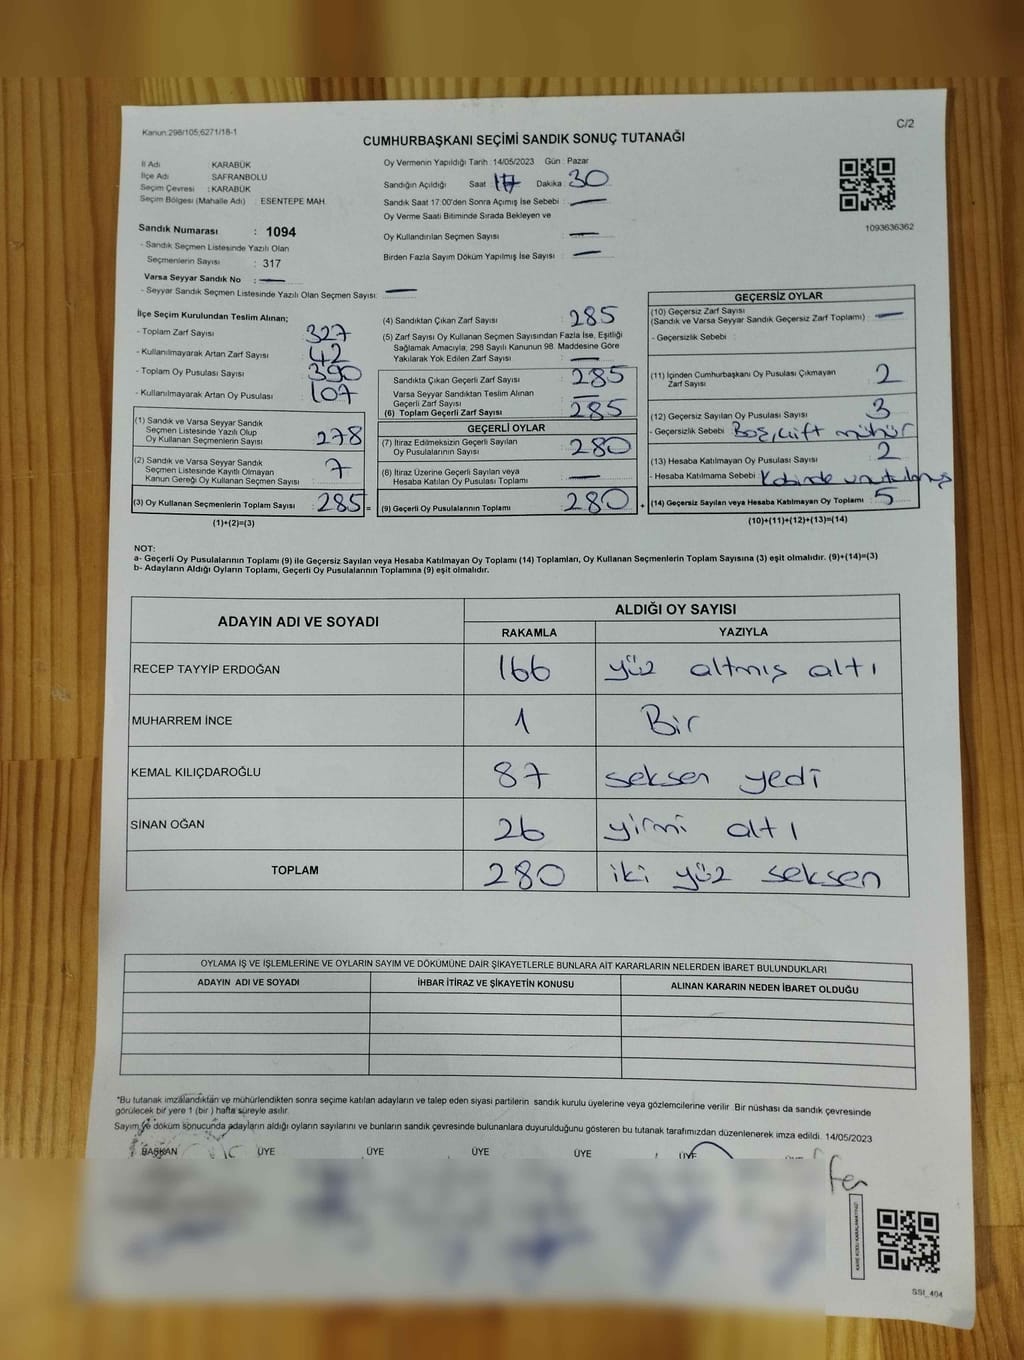 Kanun:298/105;6271/18-1
C/2
CUMHURBAŞKANI SEÇİMİ SANDIK SONUÇ TUTANAĞI
İl Adı KARABÜK
İlçe Adı SAFRANBOLU
Seçim Çevresi : KARABÜK
Seçim Bölgesi (Mahalle Adı) : ESENTEPE MAH.
Sandık Numarası : 1094
- Sandık Seçmen Listesinde Yazılı Olan
Seçmenlerin Sayısı : 317
Varsa Seyyar Sandık No : —
- Seyyar Sandık Seçmen Listesinde Yazılı Olan Seçmen Sayısı: —
Oy Vermenin Yapıldığı Tarih : 14/05/2023 Gün : Pazar
Sandığın Açıldığı Saat 17 Dakika 30
Sandık Saat 17:00'den Sonra Açımış İse Sebebi : —
Oy Verme Saati Bitiminde Sırada Bekleyen ve
Oy Kullandırılan Seçmen Sayısı —
Birden Fazla Sayım Döküm Yapılmış İse Sayısı : —
1093636362
İlçe Seçim Kurulundan Teslim Alınan;
- Toplam Zarf Sayısı 327
- Kullanılmayarak Artan Zarf Sayısı 42
- Toplam Oy Pusulası Sayısı 390
- Kullanılmayarak Artan Oy Pusulası 107
(1) Sandık ve Varsa Seyyar Sandık
Seçmen Listesinde Yazılı Olup
Oy Kullanan Seçmenlerin Sayısı : 278
(2) Sandık ve Varsa Seyyar Sandık
Seçmen Listesinde Kayıtlı Olmayan
Kanun Gereği Oy Kullanan Seçmen Sayısı : 7
(3) Oy Kullanan Seçmenlerin Toplam Sayısı : 285 =
(1)+(2)=(3)
(4) Sandıktan Çıkan Zarf Sayısı : 285
(5) Zarf Sayısı Oy Kullanan Seçmen Sayısından Fazla İse, Eşitliği
Sağlamak Amacıyla; 298 Sayılı Kanunun 98. Maddesine Göre
Yakılarak Yok Edilen Zarf Sayısı : —
Sandıkta Çıkan Geçerli Zarf Sayısı : 285
Varsa Seyyar Sandıktan Teslim Alınan
Geçerli Zarf Sayısı : —
(6) Toplam Geçerli Zarf Sayısı : 285
GEÇERLİ OYLAR
(7) İtiraz Edilmeksizin Geçerli Sayılan
Oy Pusulalarının Sayısı : 280
(8) İtiraz Üzerine Geçerli Sayılan veya
Hesaba Katılan Oy Pusulası Toplamı : —
(9) Geçerli Oy Pusulalarının Toplamı : 280 +
GEÇERSİZ OYLAR
(10) Geçersiz Zarf Sayısı
(Sandık ve Varsa Seyyar Sandık Geçersiz Zarf Toplamı) : —
- Geçersizlik Sebebi :
(11) İçinden Cumhurbaşkanı Oy Pusulası Çıkmayan
Zarf Sayısı : 2
(12) Geçersiz Sayılan Oy Pusulası Sayısı : 3
- Geçersizlik Sebebi : Boş, çift mühür
(13) Hesaba Katılmayan Oy Pusulası Sayısı : 2
- Hesaba Katılmama Sebebi : Kabinde unutulmuş
(14) Geçersiz Sayılan veya Hesaba Katılmayan Oy Toplamı : 5
(10)+(11)+(12)+(13)=(14)
NOT:
a- Geçerli Oy Pusulalarının Toplamı (9) ile Geçersiz Sayılan veya Hesaba Katılmayan Oy Toplamı (14) Toplamları, Oy Kullanan Seçmenlerin Toplam Sayısına (3) eşit olmalıdır. (9)+(14)=(3)
b- Adayların Aldığı Oyların Toplamı, Geçerli Oy Pusulalarının Toplamına (9) eşit olmalıdır.
ADAYIN ADI VE SOYADI ALDIĞI OY SAYISI
RAKAMLA YAZIYLA
RECEP TAYYİP ERDOĞAN 166 yüz altmış altı
MUHARREM İNCE 1 Bir
KEMAL KILIÇDAROĞLU 87 seksen yedi
SİNAN OĞAN 26 yirmi altı
TOPLAM 280 iki yüz seksen
OYLAMA İŞ VE İŞLEMLERİNE VE OYLARIN SAYIM VE DÖKÜMÜNE DAİR ŞİKAYETLERLE BUNLARA AİT KARARLARIN NELERDEN İBARET BULUNDUKLARI
ADAYIN ADI VE SOYADI İHBAR İTİRAZ VE ŞİKAYETİN KONUSU ALINAN KARARIN NEDEN İBARET OLDUĞU
*Bu tutanak imzalandıktan ve mühürlendikten sonra seçime katılan adayların ve talep eden siyasi partilerin sandık kurulu üyelerine veya gözlemcilerine verilir. Bir nüshası da sandık çevresinde
görülecek bir yere 1 (bir ) hafta süreyle asılır.
Sayım ve döküm sonucunda adayların aldığı oyların sayılarını ve bunların sandık çevresinde bulunanlara duyurulduğunu gösteren bu tutanak tarafımızdan düzenlenerek imza edildi. 14/05/2023
BAŞKAN ÜYE ÜYE ÜYE ÜYE ÜYE
SSI_404